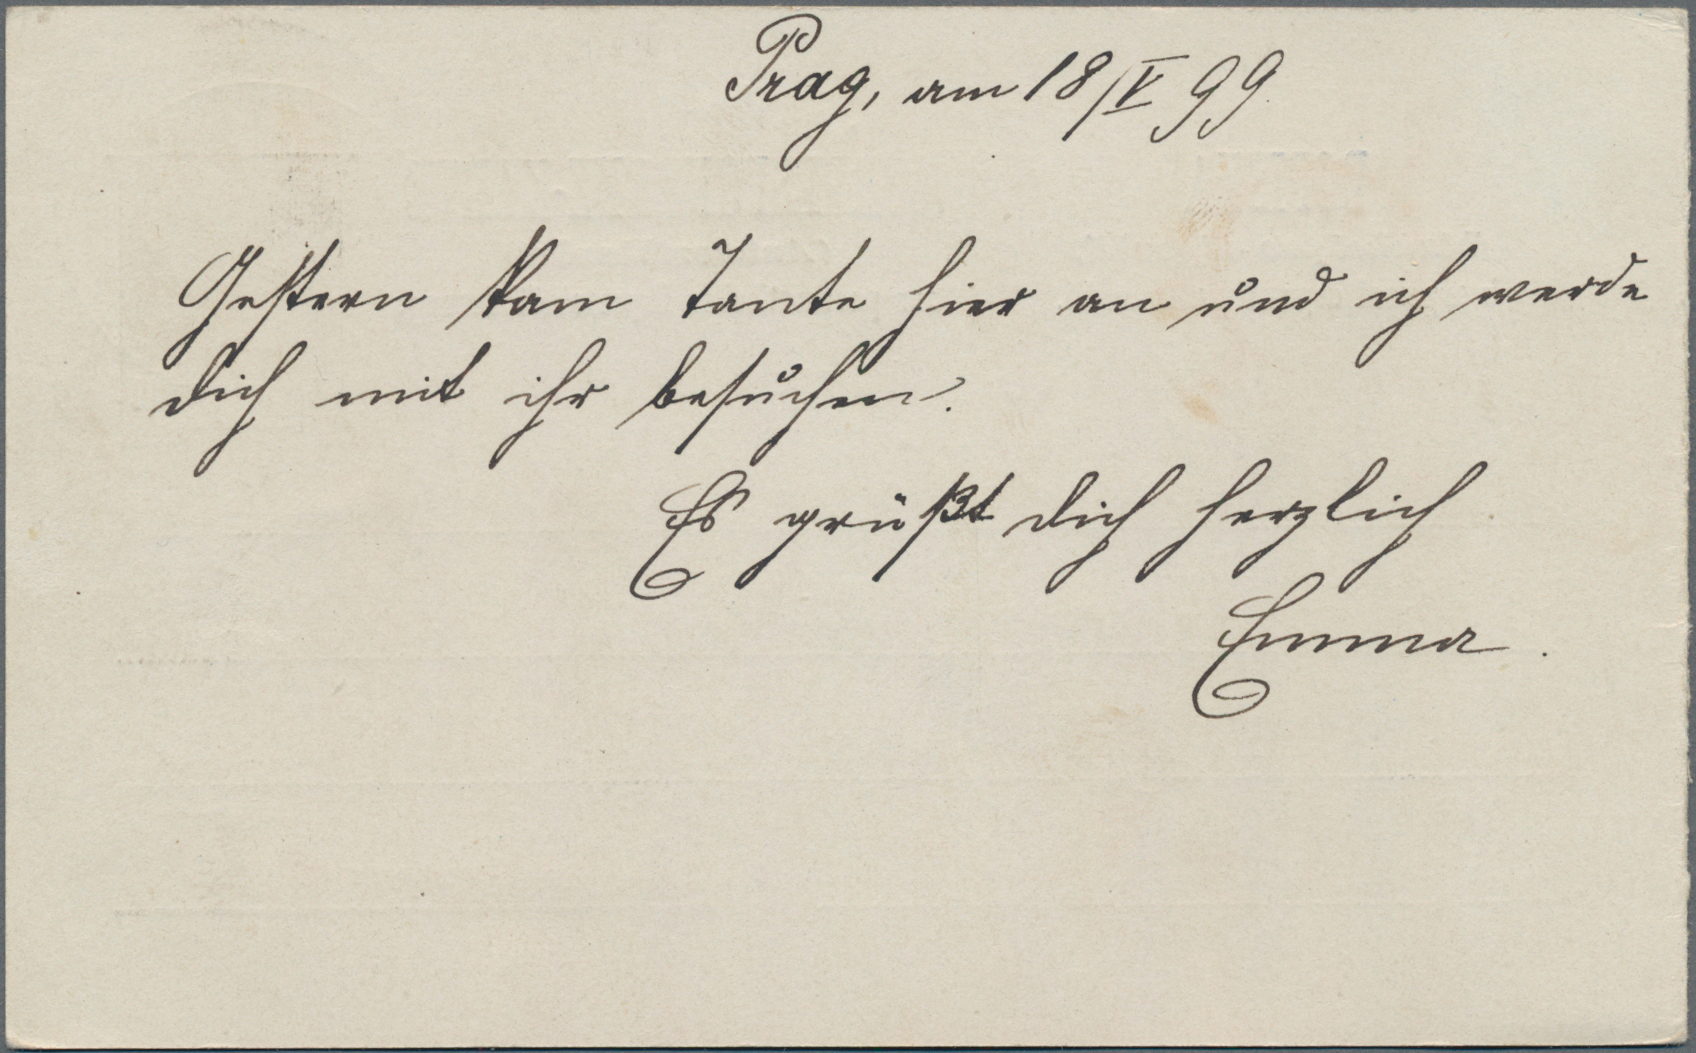 Prag, am 18/V 99.
Gestern kam Tante hier an und ich werde
dich mit ihr besuchen.
Es grüßt dich herzlich
Emma.